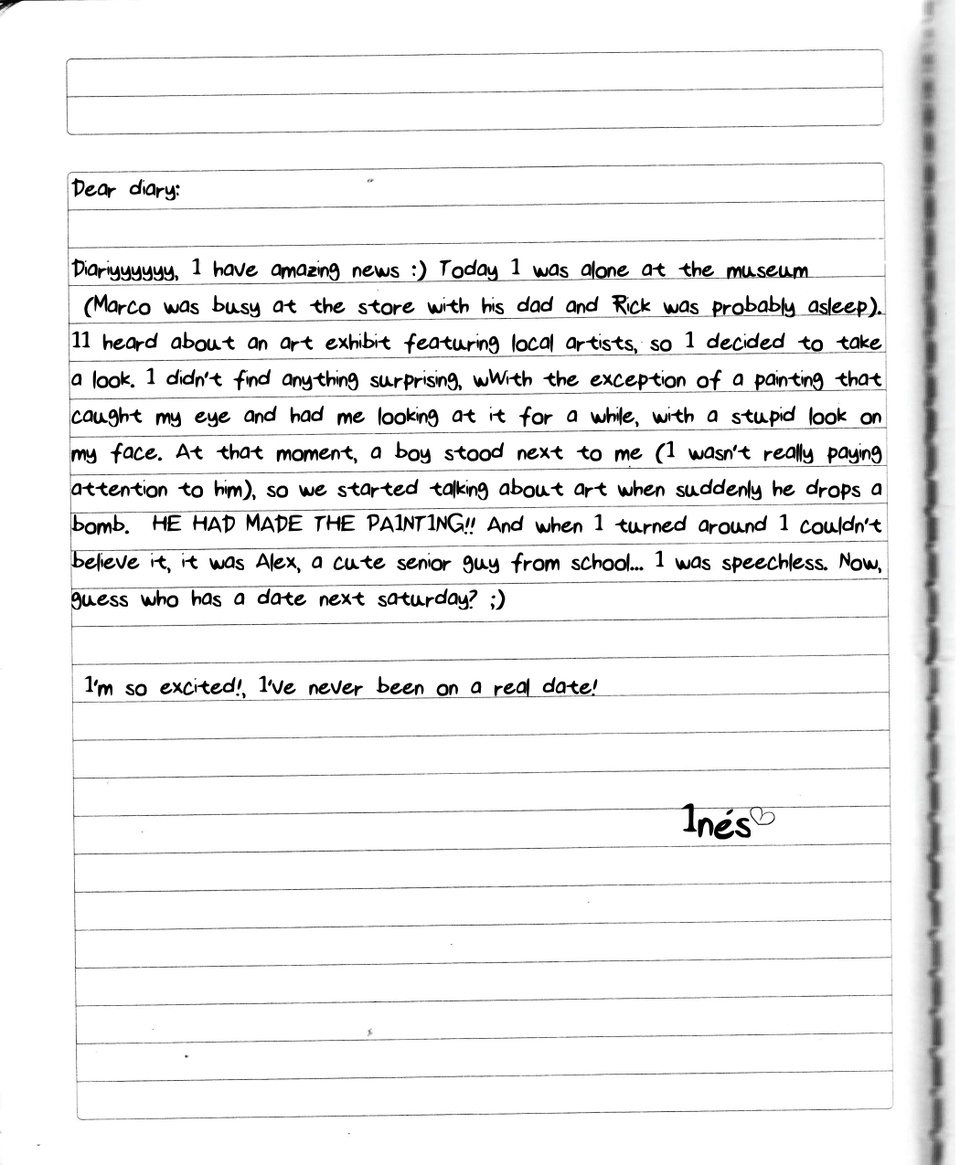 Dear diary:
Diariyyyyyy, I have amazing news :) Today I was alone at the museum
(Marco was busy at the store with his dad and Rick was probably asleep).
II heard about an art exhibit featuring local artists, so I decided to take
a look. I didn't find anything surprising, wWith the exception of a painting that
caught my eye and had me looking at it for a while, with a stupid look on
my face. At that moment, a boy stood next to me (I wasn't really paying
attention to him), so we started talking about art when suddenly he drops a
bomb. HE HAD MADE THE PAINTING!! And when I turned around I couldn't
believe it, it was Alex, a cute senior guy from school... I was speechless. Now,
guess who has a date next saturday? ;)
I'm so excited!, I've never been on a real date!
Inés♡